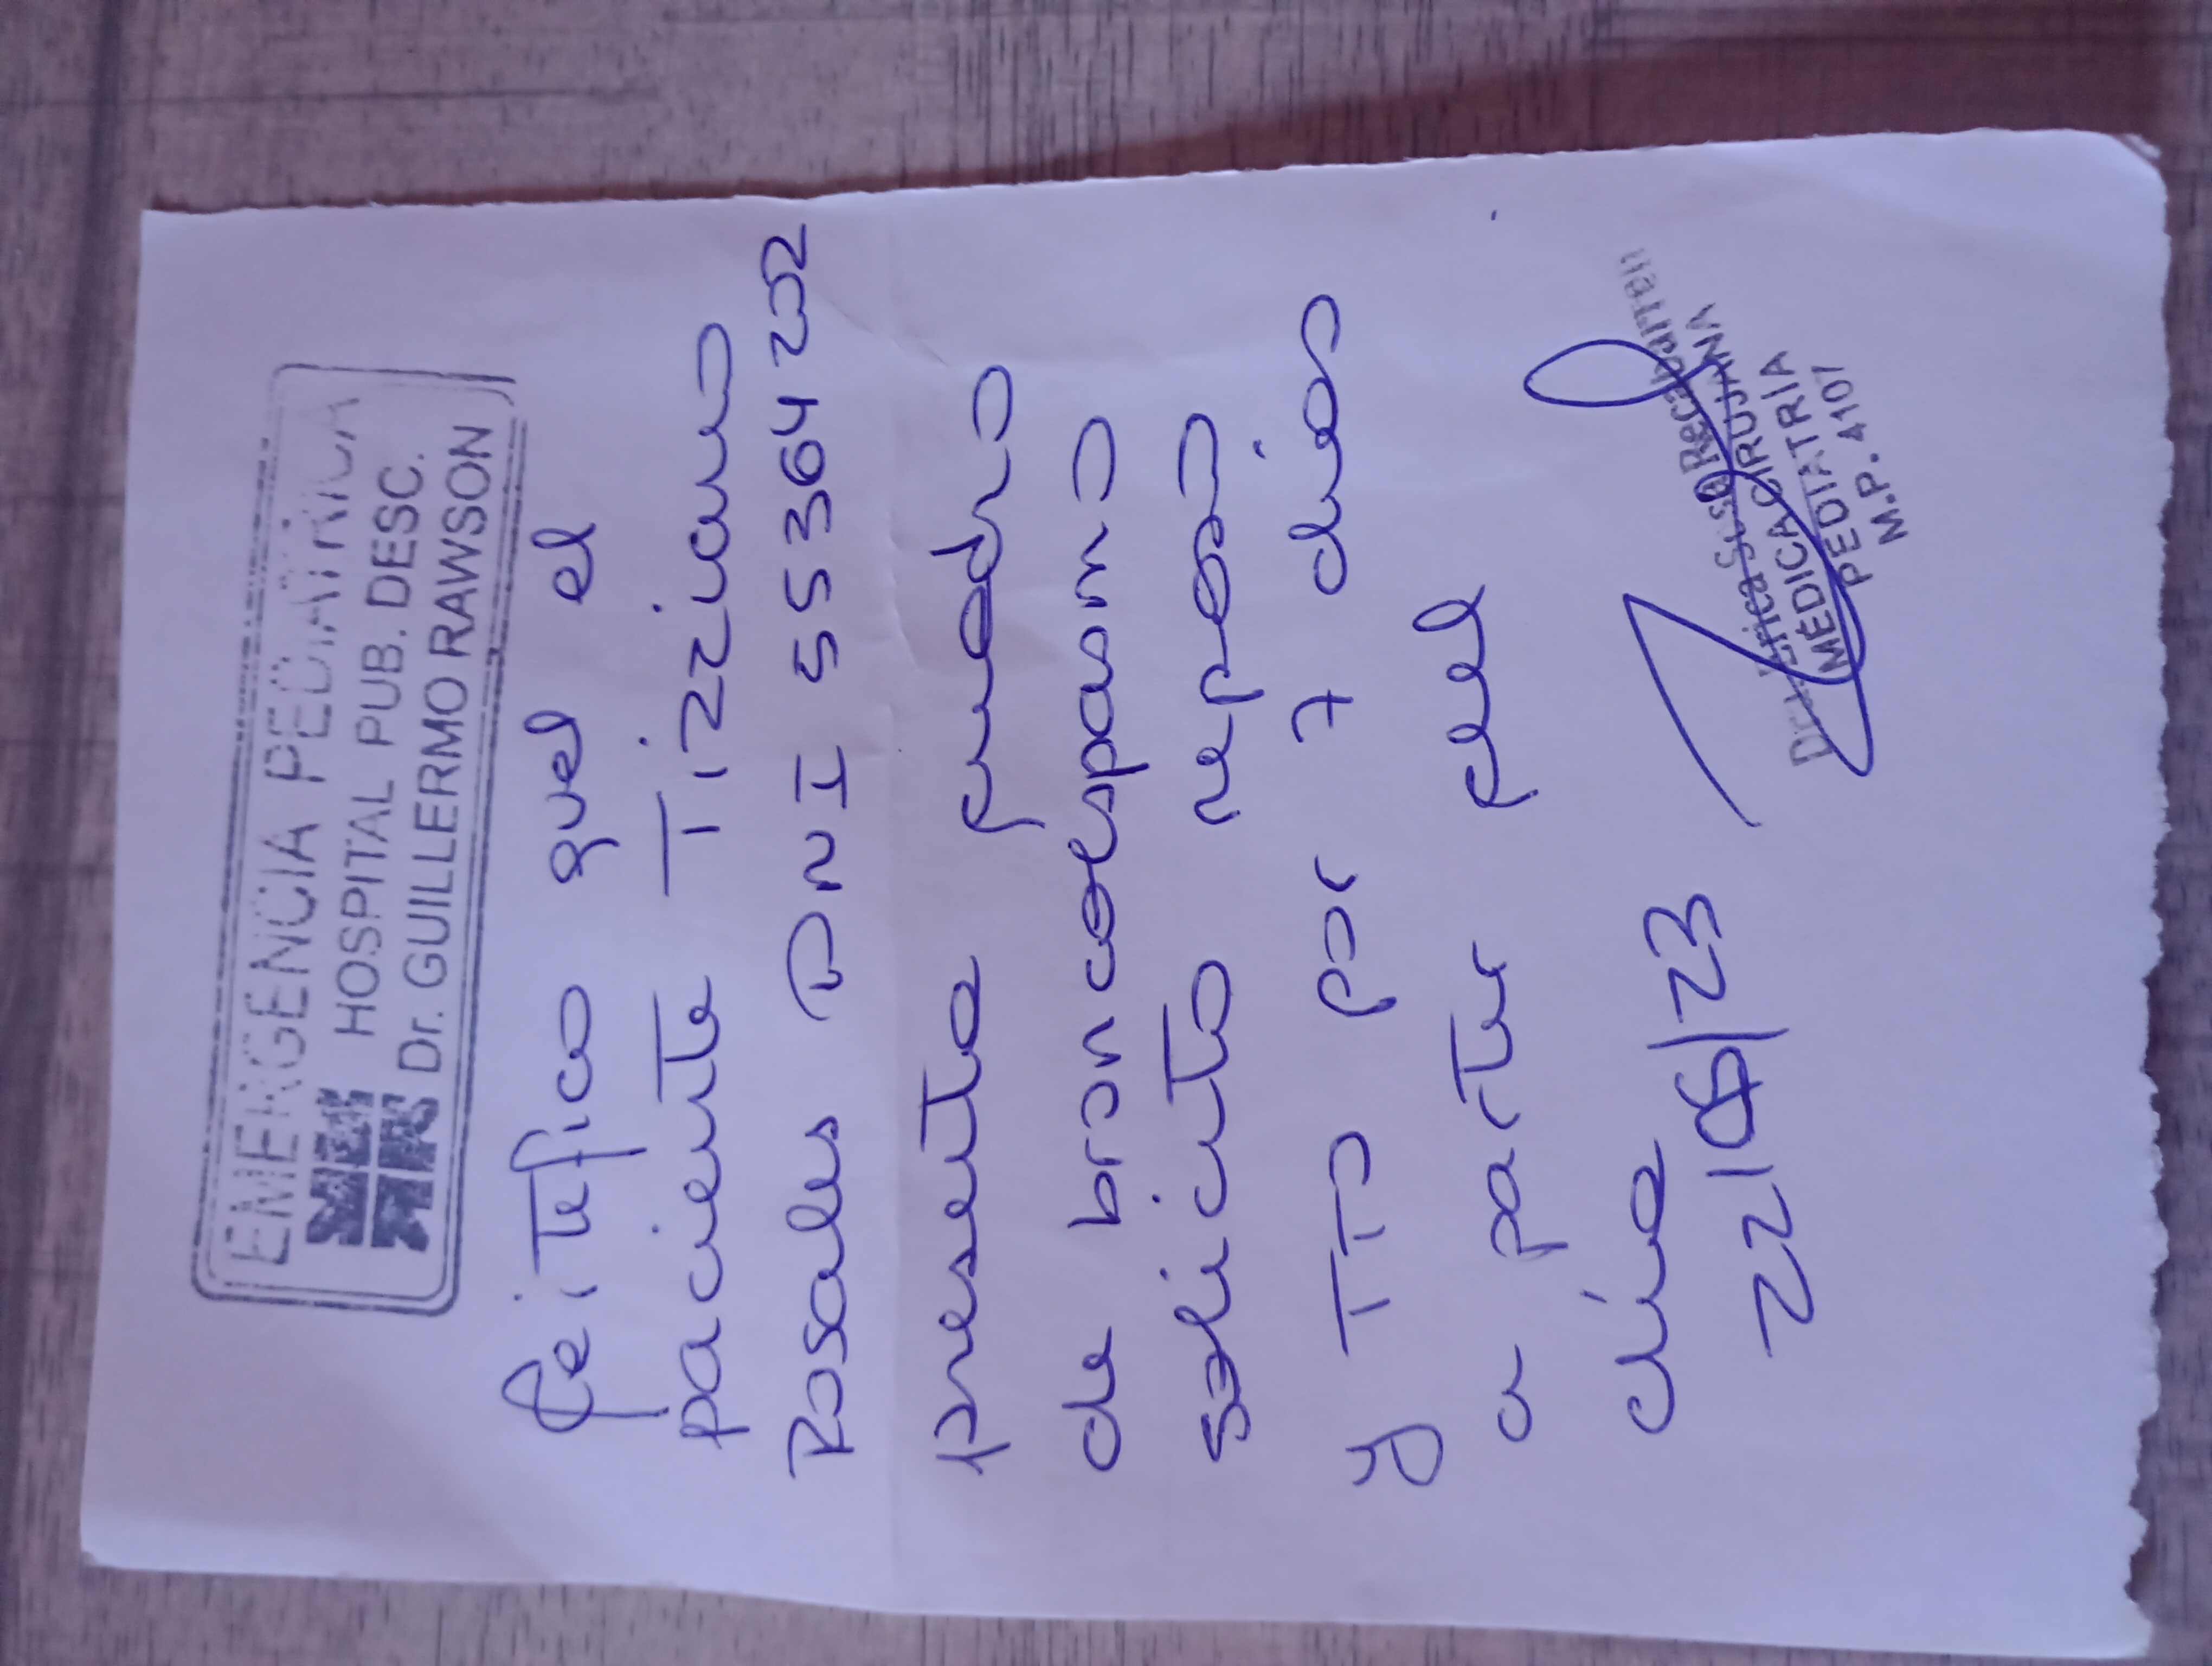 EMERGENCIA PEDIATRICA
HOSPITAL PUB. DESC.
Dr. GUILLERMO RAWSON
Certifico que el
paciente Tiziano
Rosales DNI 55364252
presenta cuadro
de broncoespasmo
solicito reposo
y TTO por 7 días
a partir del
día
22/06/23
Dra. Erica Susa Recabarren
MÉDICA CIRUJANA
PEDIATRIA
M.P. 4107